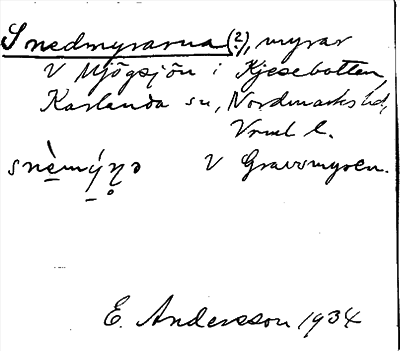 Snedmyrarna (?), myrar
V Mjögsjön i Kjesebotten,
Karlanda sn, Nordmarks hd,
Vrml l.
snè̱mý̱n̥ə V Gravsmyren.
E. Andersson 1934